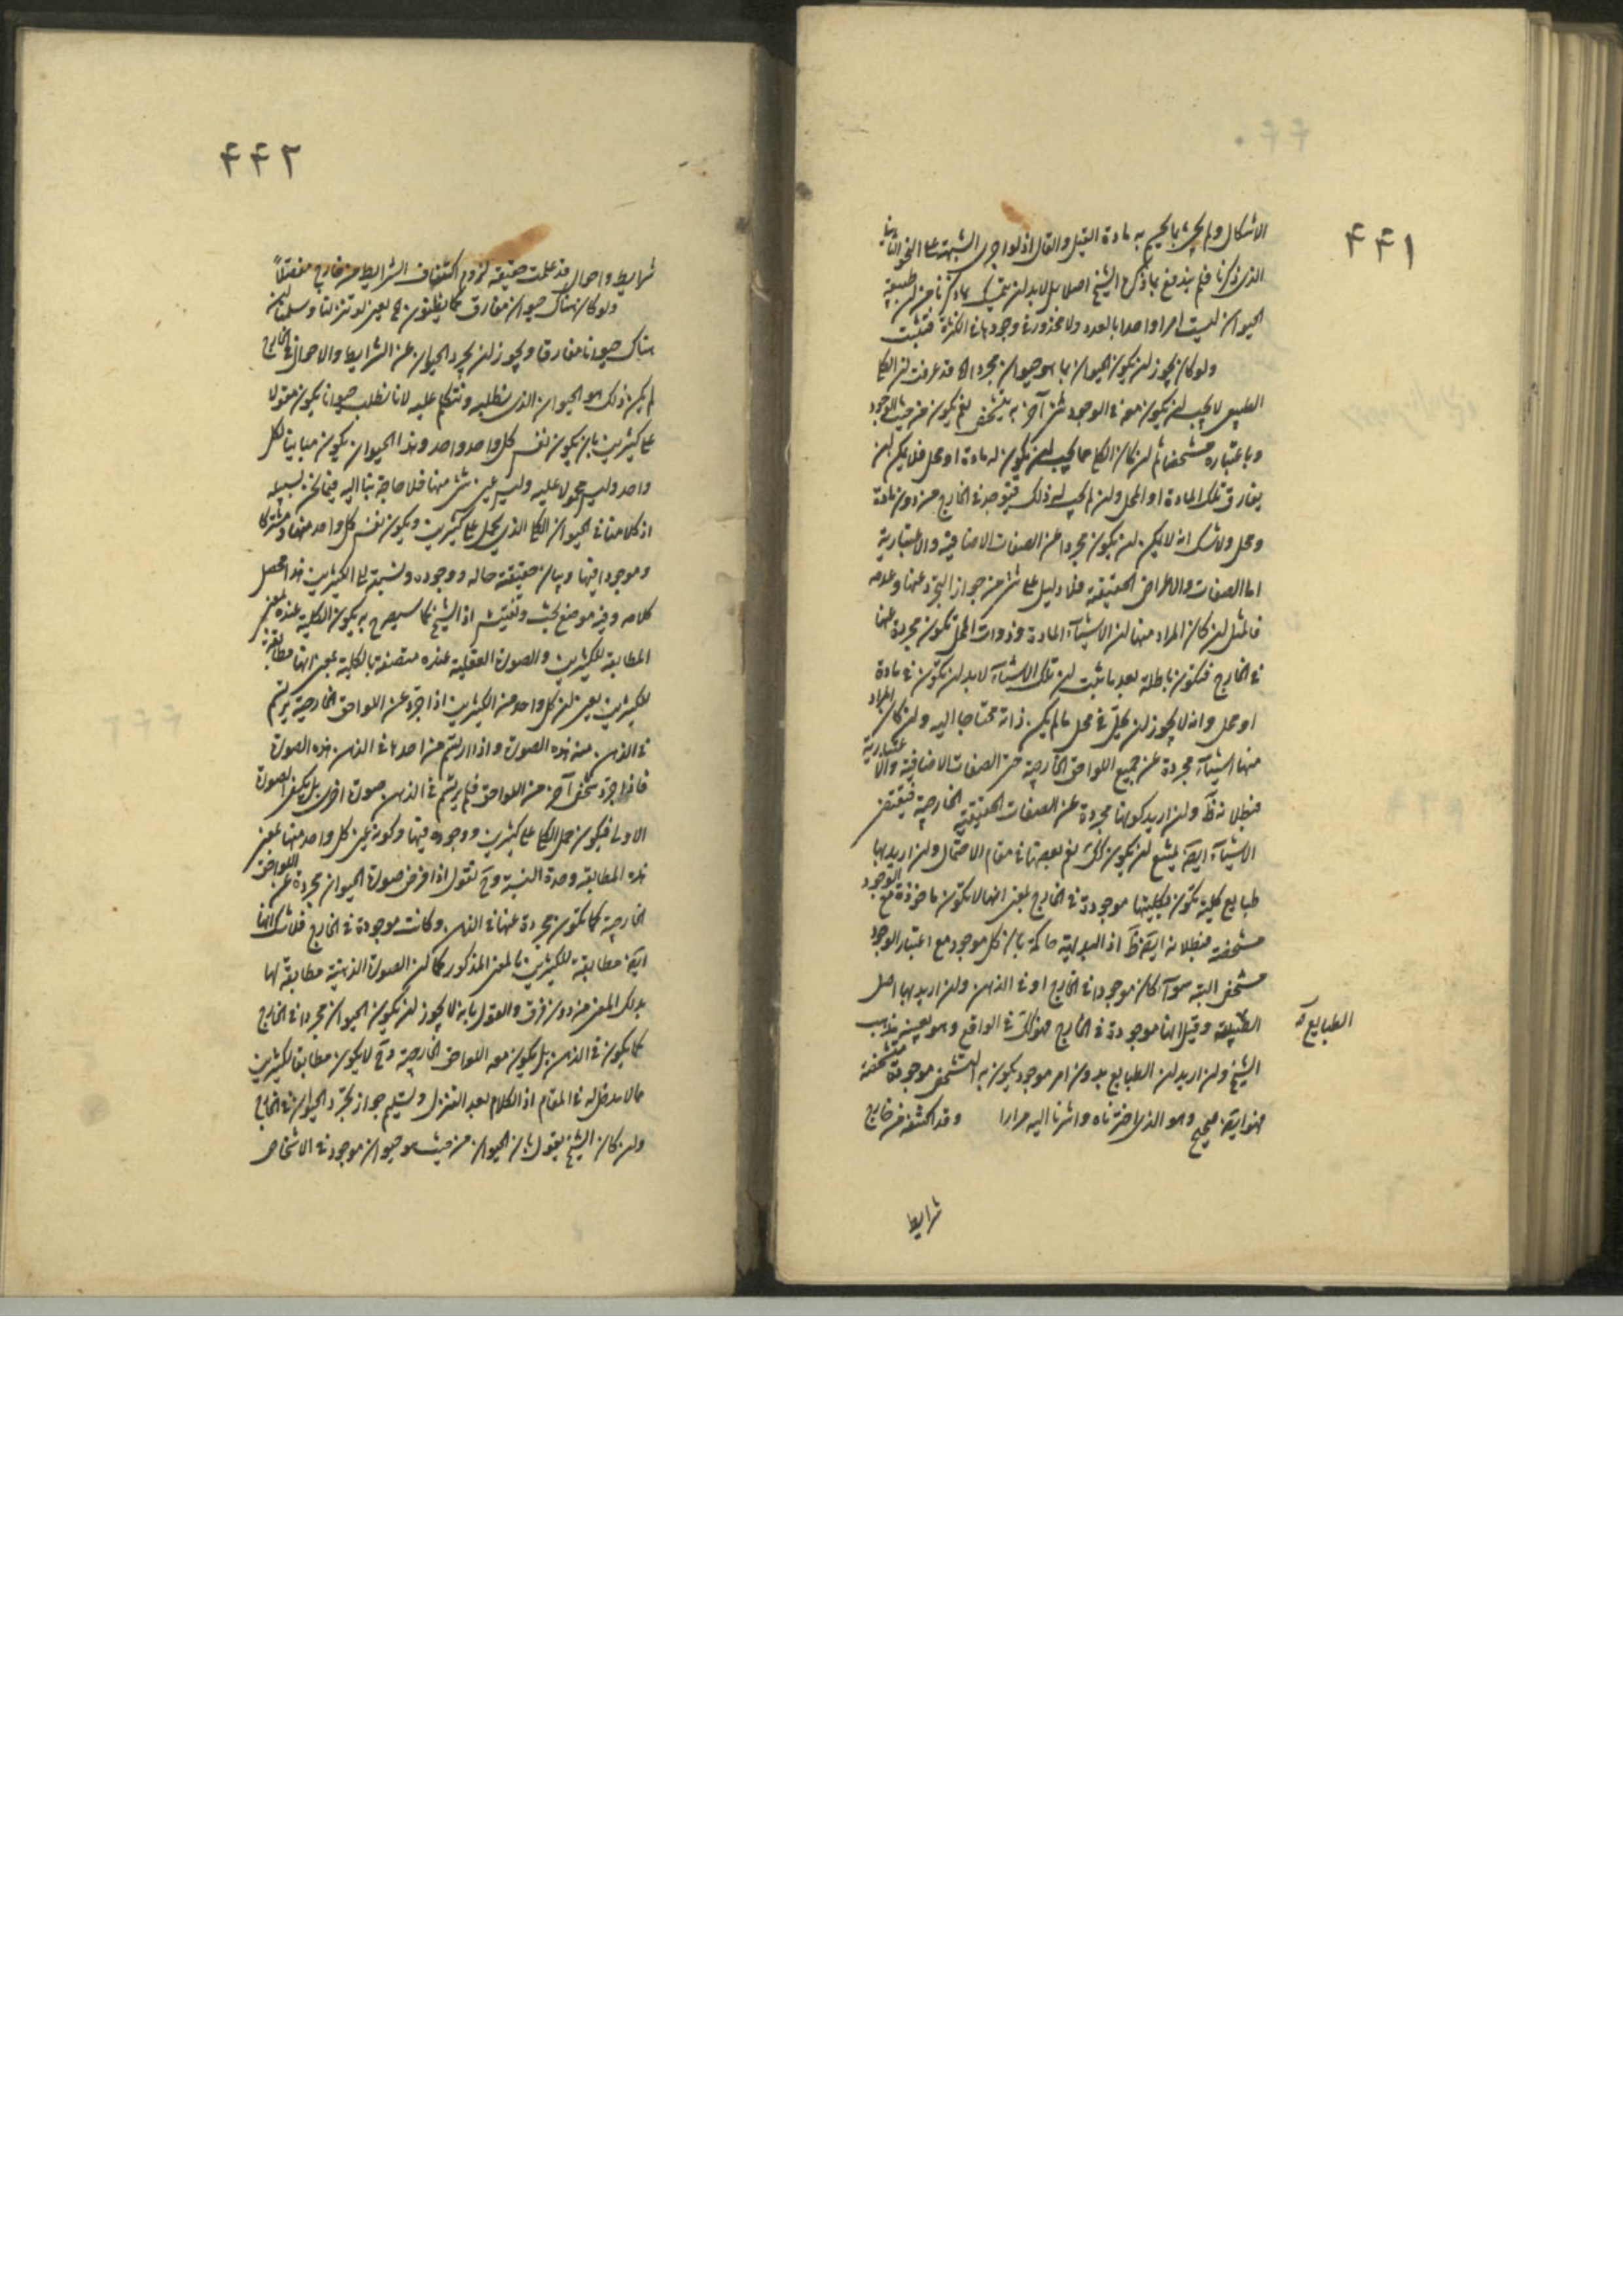 ۴۴۱
الاشكال ولم يجئ بما يحسم به مادة القيل والقال اذ لو اجرى الشبهة على النحو الثانى
الذى ذكرنا فلم يندفع بما ذكره الشيخ اصلا بل لابد ان يتمسك بما ذكرنا من ان طبيعة
الحيوان ليست امرا واحدا بالعدد ولا محذور فى وجودها فى الكثرة فتثبت
ولو كان يجوز ان يكون الحيوان بما هو حيوان مجردا اه قد عرفت ان الكلى
الطبيعى لا يجب ان يكون معه فى الوجود شئ آخر به يتشخص نعم يكون من حيث الوجود
وباعتباره متشخصا ثم ان كان الكلى مما يجب ان يكون له مادة او محل فلا يمكن ان
يفارق تلك المادة او المحل وان لم يجب له ذلك فيوجد فى الخارج من دون مادة
ومحل ولا شك انه لا يمكن ان يكون مجردا عن الصفات الاضافية والاعتبارية
اما الصفات والاعراض الحقيقية فلا دليل على شئ من جواز التجرد عنها وعدمه
فالمثل ان كان المراد منها ان الاشياء المادة وذوات المحل تكون مجردة عنها
فى الخارج فتكون باطلة بعد ما ثبت ان تلك الاشياء لابد ان تكون فى مادة
او محل وانه لا يجوز ان يحل فى محل ما لم يكن ذاته محتاجا اليه وان كان المراد
منها اشياء مجردة عن جميع اللواحق الخارجية حتى الصفات الاضافية والاعتبارية
فبطلانه ظ وان اريد كونها مجردة عن الصفات الحقيقية الخارجية فبعض
الاشياء ايض يمتنع ان يكون كك نعم بعضها فى مقام الاحتمال وان اريد بها
طبايع كلية تكون بكليتها موجودة فى الخارج بمعنى انها لا تكون ماخوذة مع الوجود
متشخصة فبطلانه ايض ظ اذ البديهة حاكمة بان كل موجود مع اعتبار الوجود
متشخص البتة سواء كان موجودا فى الخارج او فى الذهن وان اريد بها اصل
الطبيعة وقيل انها موجودة فى الخارج فهو كك فى الواقع وهو بعينه مذهب
الطبايع
الشيخ وان اريد ان الطبايع بدون امر موجود يكون به التشخص موجودة متشخصة
فهو ايض صحيح وهو الذى اخترناه واشرنا اليه مرارا وقد اكتنفه من خارج
شرايط
۴۴۲
شرايط واحوال قد علمت حقيقة لزوم اكتناف الشرايط من خارج مفصلا
ولو كان هناك حيوان مفارق كما يظنون اه يعنى لو تنزلنا وسلمنا ان
هناك حيوانا مفارقا ويجوز ان يجرد الحيوان عن الشرايط والاحوال فى الخارج
لم يكن ذلك هو الحيوان الذى نطلبه ونتكلم عليه لانا نطلب حيوانا يكون مقولا
على كثيرين بان يكون نفس كل واحد واحد وهذا الحيوان يكون مباينا لكل
واحد وليس محمولا عليه وليس عين شئ منها فلا حاجة بنا اليه فيما نحن بسبيله
اذ كلامنا فى الحيوان الكلى الذى يحمل على كثيرين ويكون نفس كل واحد منها ومشتركا
وموجودا فيها وبيان حقيقة حاله ووجوده ونسبته الى الكثيرين هذا محصل
كلامه وفيه موضع بحث وتفتيش اذ الشيخ كما سيصرح به يكون الكلية عنده بمعنى
المطابقة للكثيرين والصورة العقلية عنده متصفة بالكلية بمعنى انها مطابقة
للكثيرين بمعنى ان كل واحد من الكثيرين اذا جرد عن اللواحق الخارجية يرتسم
فى الذهن منه هذه الصورة واذا ارتسم من احدها فى الذهن هذه الصورة
فاذا جرد شخص آخر من اللواحق فلم يرتسم فى الذهن صورة اخرى بل يكفى الصورة
الاولى فيكون حمل الكلى على كثيرين ووجوده فيها وكونه عين كل واحد منها بمعنى
هذه المطابقة وحدة النسبة وح نقول اذا فرض صورة الحيوان مجردة عن اللواحق
الخارجية كما تكون مجردة عنها فى الذهن وكانت موجودة فى الخارج فلا شك انها
ايض مطابقة للكثيرين بالمعنى المذكور كما ان الصورة الذهنية مطابقة لها
بذلك المعنى من دون فرق والقول بانه لا يجوز ان يكون الحيوان مجردا فى الخارج
كما يكون فى الذهن بل يكون معه اللواحق الخارجية وح لا يكون مطابقا لكثيرين
مما لا مدخل له فى المقام اذ الكلام بعد التنزل وتسليم جواز تجرد الحيوان فى الخارج
وان كان الشيخ يقول بان الحيوان من حيث هو حيوان موجود فى الاشخاص